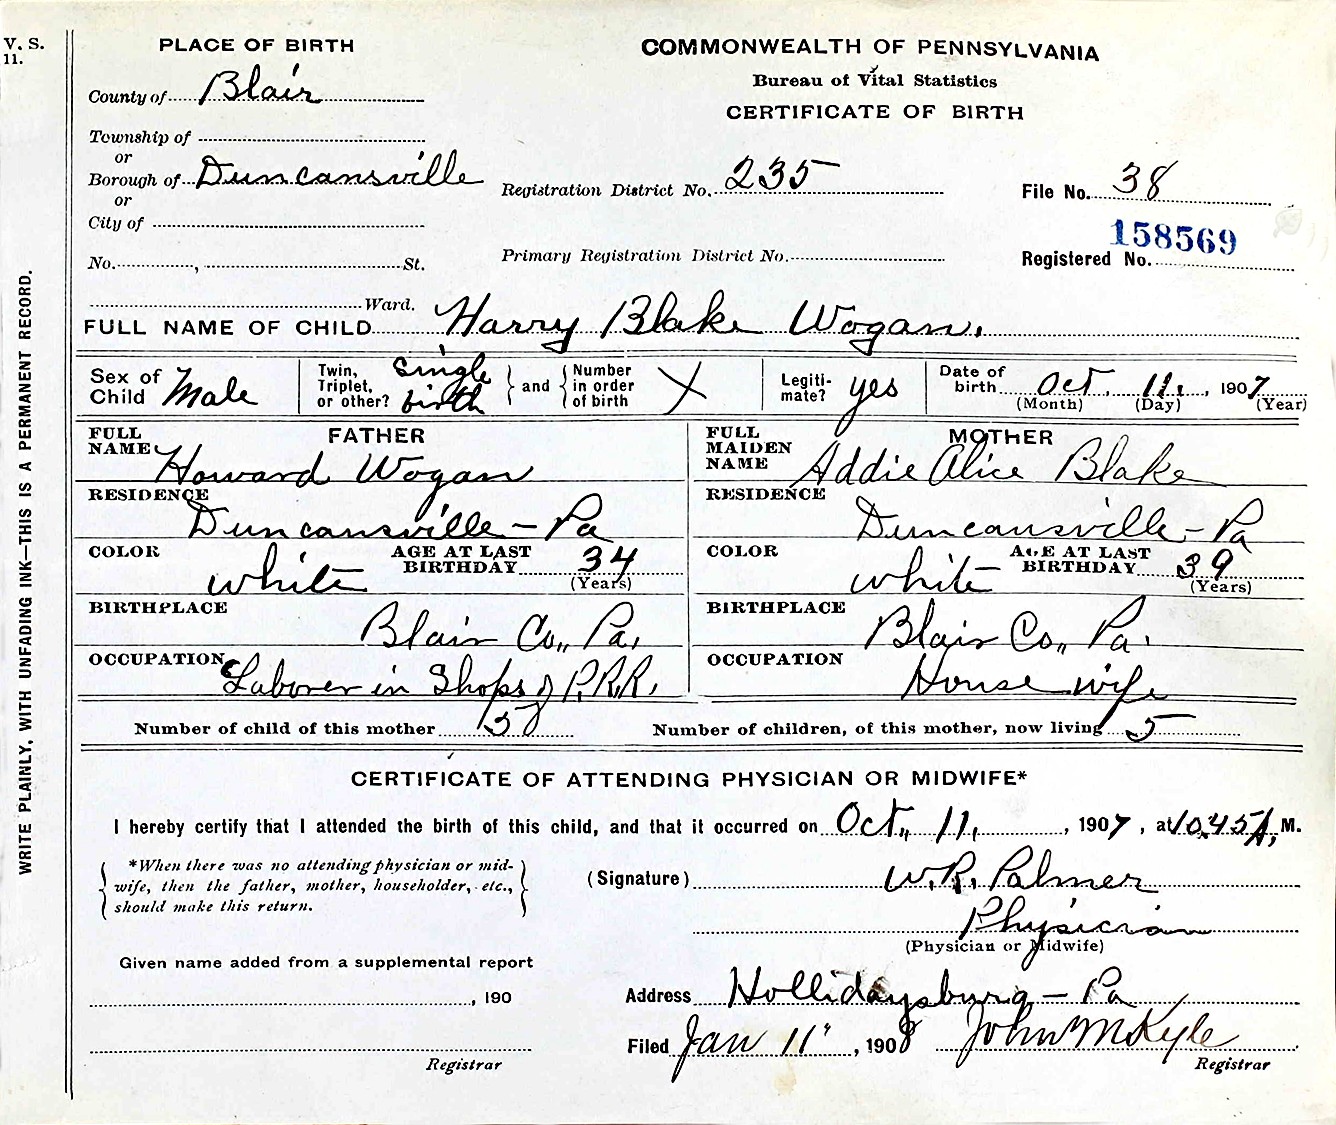 V. S.
11.
WRITE PLAINLY, WITH UNFADING INK—THIS IS A PERMANENT RECORD.
PLACE OF BIRTH
County of Blair
Township of
or
Borough of Duncansville
or
City of
No. , St.
Ward.
COMMONWEALTH OF PENNSYLVANIA
Bureau of Vital Statistics
CERTIFICATE OF BIRTH
Registration District No. 235
File No. 38
158569
Primary Registration District No.
Registered No.
FULL NAME OF CHILD Harry Blake Wogan.
Sex of Child Male
Twin, Triplet, or other? Single birth
and
Number in order of birth X
Legitimate? yes
Date of birth Oct. 11. , 1907
(Month) (Day) (Year)
FATHER
FULL NAME Howard Wogan
RESIDENCE
Duncansville - Pa
COLOR white AGE AT LAST BIRTHDAY 34
(Years)
BIRTHPLACE
Blair Co,, Pa.
OCCUPATION
Laborer in Shops of P.R.R.
MOTHER
FULL MAIDEN NAME Addie Alice Blake
RESIDENCE
Duncansville - Pa
COLOR white AGE AT LAST BIRTHDAY 39
(Years)
BIRTHPLACE
Blair Co,, Pa.
OCCUPATION
House wife
Number of child of this mother 5
Number of children, of this mother, now living 5
CERTIFICATE OF ATTENDING PHYSICIAN OR MIDWIFE*
I hereby certify that I attended the birth of this child, and that it occurred on Oct,, 11, , 1907 , at 10.45 A, M.
*When there was no attending physician or mid-
wife, then the father, mother, householder, etc.,
should make this return.
(Signature) W.R. Palmer
Physician
(Physician or Midwife)
Given name added from a supplemental report
, 190
Registrar
Address Hollidaysburg - Pa
Filed Jan 11" , 1908 John McKyle
Registrar